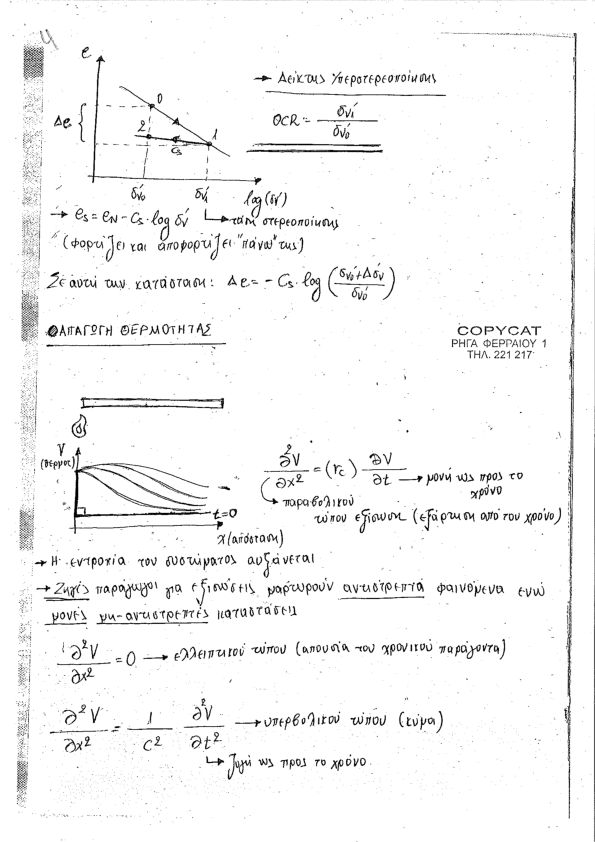 4
e
0
→ Δείκτης Υπερστερεοποίησης
Δe
2
1
Cs
OCR = σv₁' / σv₀'
σv₀' σv₁' log(σv')
→ τάση στερεοποίησης
→ es = eN - Cs · log σv'
(φορτίζει και αποφορτίζει "πάνω" της)
Σε αυτή την κατάσταση: Δe = - Cs · log (σv₀' + Δσv' / σv₀')
ΑΠΑΓΩΓΗ ΘΕΡΜΟΤΗΤΑΣ
COPYCAT
ΡΗΓΑ ΦΕΡΡΑΙΟΥ 1
ΤΗΛ. 221 217
V
(θερμοτ)
t=0
x (απόσταση)
∂²V/∂x² = (rc) ∂V/∂t → μονή ως προς το χρόνο
→ παραβολικού
τύπου εξίσωση (εξάρτηση από τον χρόνο)
→ Η εντροπία του συστήματος αυξάνεται
→ Ζυγές παράγωγοι για εξισώσεις μαρτυρούν αντιστρεπτά φαινόμενα ενώ
μονές μη-αντιστρεπτές καταστάσεις
∂²V/∂x² = 0 → ελλειπτικού τύπου (απουσία του χρονικού παράγοντα)
∂²V/∂x² = 1/C² ∂²V/∂t² → υπερβολικού τύπου (κύμα)
→ ζυγή ως προς το χρόνο.